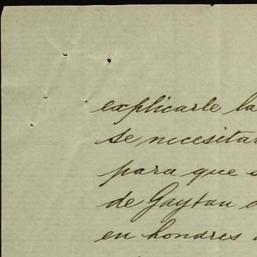 explicarle la
se necesitar
para que s
de Gaytan
en hondres